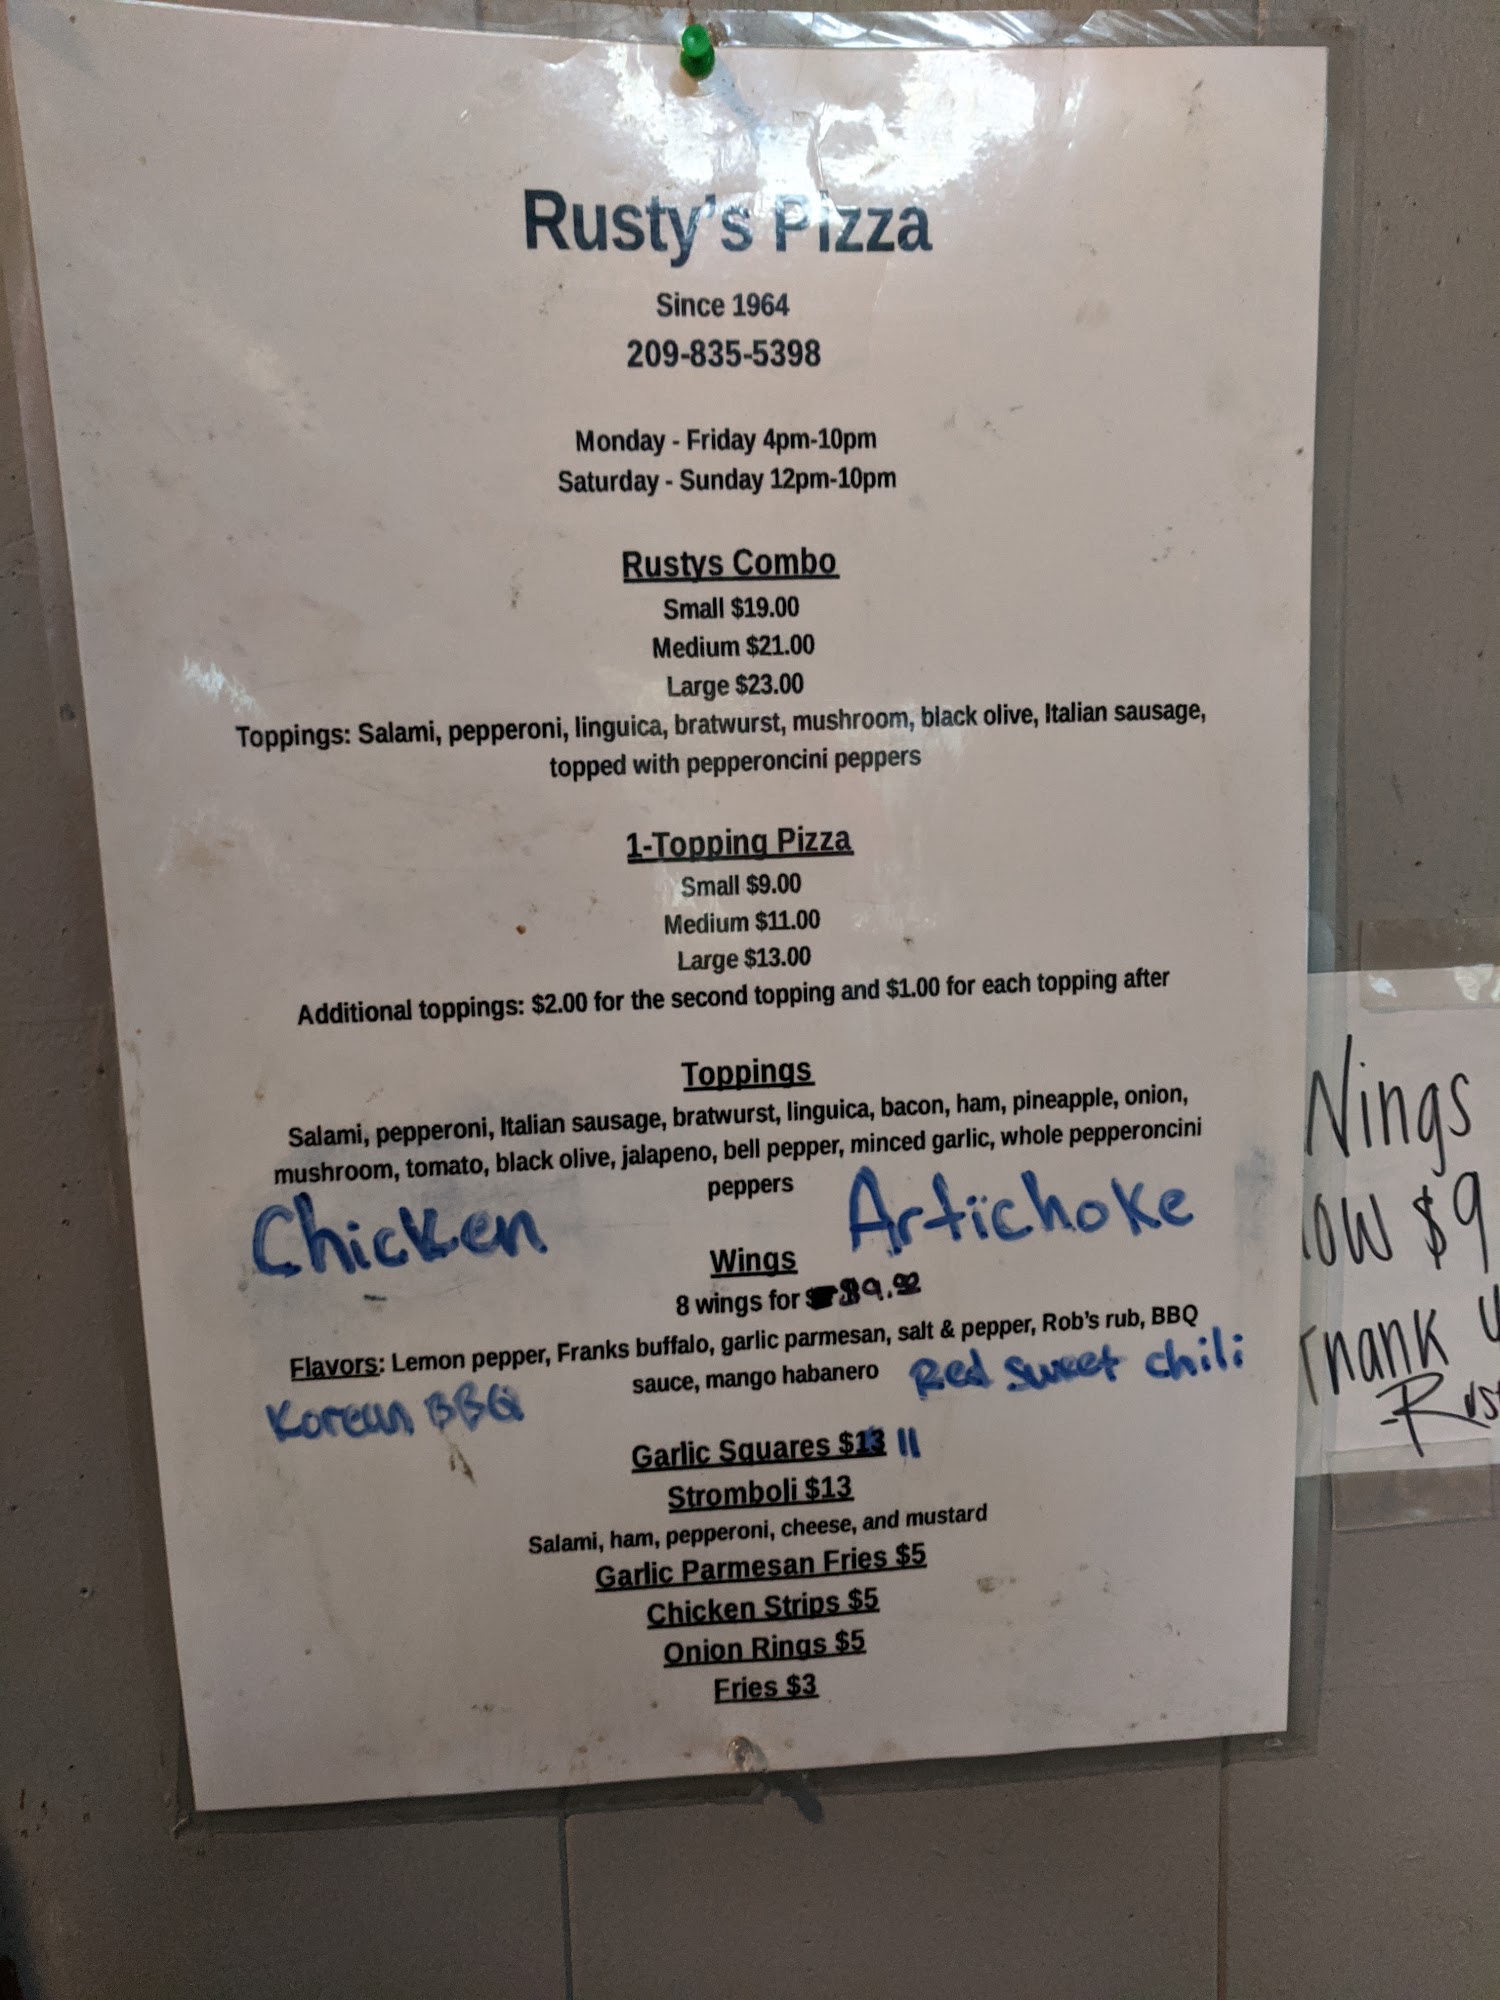 Rusty's Pizza
Since 1964
209-835-5398
Monday - Friday 4pm-10pm
Saturday - Sunday 12pm-10pm
Rustys Combo
Small $19.00
Medium $21.00
Large $23.00
Toppings: Salami, pepperoni, linguica, bratwurst, mushroom, black olive, Italian sausage,
topped with pepperoncini peppers
1-Topping Pizza
Small $9.00
Medium $11.00
Large $13.00
Additional toppings: $2.00 for the second topping and $1.00 for each topping after
Toppings
Salami, pepperoni, Italian sausage, bratwurst, linguica, bacon, ham, pineapple, onion,
mushroom, tomato, black olive, jalapeno, bell pepper, minced garlic, whole pepperoncini
peppers
Chicken Artichoke
Wings
8 wings for $9.00
Flavors: Lemon pepper, Franks buffalo, garlic parmesan, salt & pepper, Rob's rub, BBQ
sauce, mango habanero Red sweet chili
Korean BBQ
Garlic Squares $13 11
Stromboli $13
Salami, ham, pepperoni, cheese, and mustard
Garlic Parmesan Fries $5
Chicken Strips $5
Onion Rings $5
Fries $3
Wings
$9
Thank